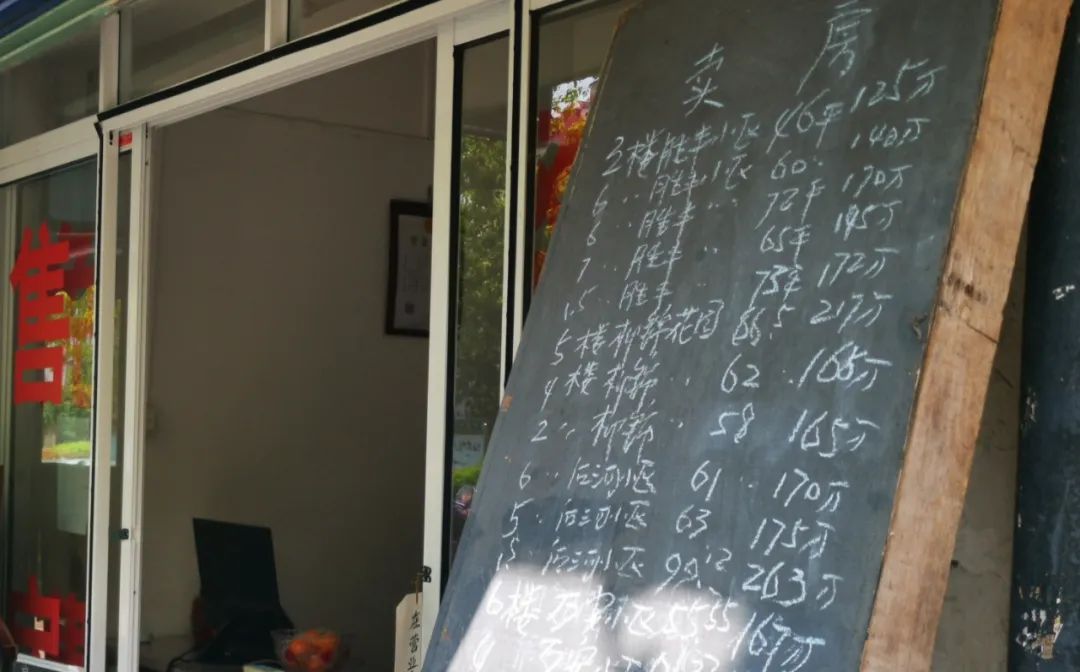 售
卖 房
3楼胜丰小区 46平 125万
6 〃 胜丰小区 60 〃 140万
6 〃 胜丰 〃 72平 170万
7 〃 胜丰 〃 65平 145万
1.5 〃 胜丰 〃 73平 172万
5楼柳锦花园 86.5 217万
4楼柳锦 〃 62 〃 165万
2 〃 柳锦 〃 58 165万
6 〃 后河小区 61 〃 170万
5 〃 后河小区 63 175万
〃 后河小区 263万
6楼 小区 55.55 167万
4
在营业